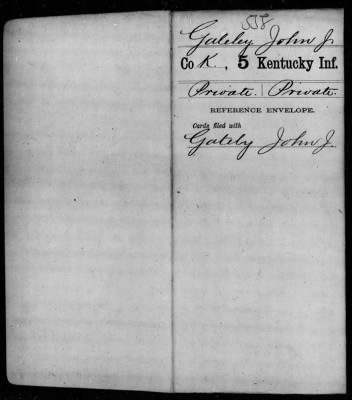 558
Gateley John J.
Co K., 5 Kentucky Inf.
Private. | Private.
REFERENCE ENVELOPE.
Cards filed with
Gateby John J.